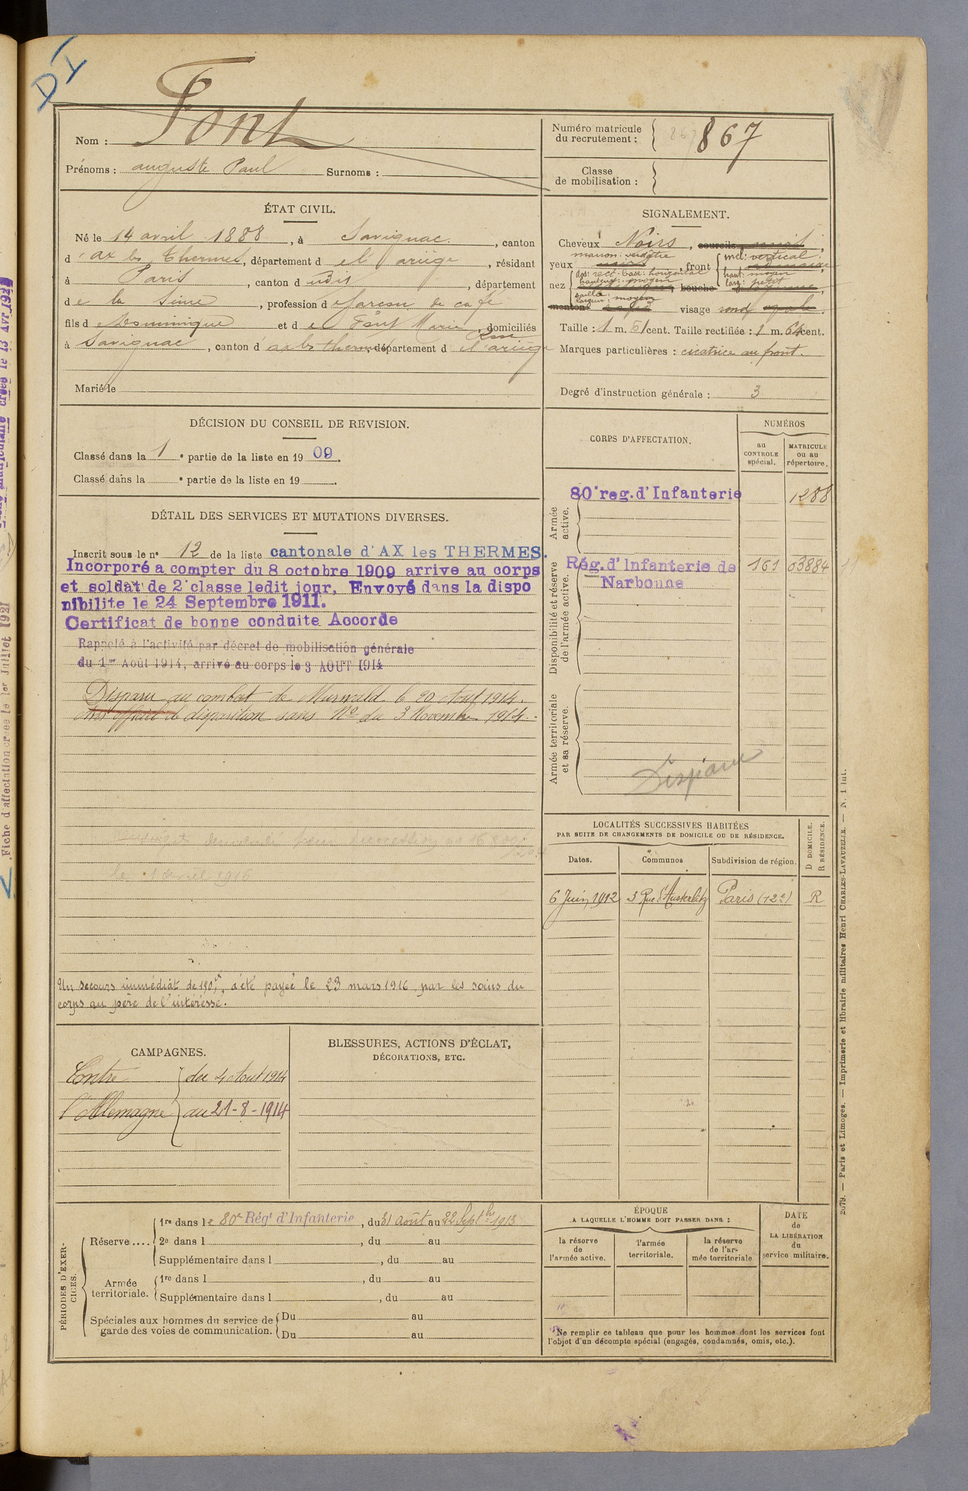 DI
Nom : Font
Prénoms : auguste Paul Surnoms :
Numéro matricule du recrutement : 867
Classe de mobilisation :
ÉTAT CIVIL.
Né le 14 avril 1888, à Savignac, canton
d'ax les thermes, département d e l'ariège, résidant
à Paris, canton d udit, département
d e la Seine, profession d garçon de café
fils d e Dominique et d e Font Marie, domiciliés
à Savignac, canton d'ax les thermes, département d e l'ariège
Marié le
SIGNALEMENT.
Cheveux Noirs, sourcils
yeux marron verdâtre, front
nez bouche
menton visage rond
Taille : 1 m. 61 cent. Taille rectifiée : 1 m. 64 cent.
Marques particulières : cicatrice au front.
Degré d'instruction générale : 3
DÉCISION DU CONSEIL DE REVISION.
Classé dans la 1 e partie de la liste en 1909.
Classé dans la e partie de la liste en 19
DÉTAIL DES SERVICES ET MUTATIONS DIVERSES.
Inscrit sous le n° 12 de la liste cantonale d'AX les THERMES.
Incorporé a compter du 8 octobre 1909 arrive au corps
et soldat de 2e classe ledit jour. Envoyé dans la dispo
nibilite le 24 Septembre 1911.
Certificat de bonne conduite Accorde
Rappelé à l'activité par décret de mobilisation générale
du 1er Août 1914, arrivé au corps le 3 AOUT 1914
Disparu au combat de Murwald le 20 Août 1914.
disparition sans No du 3 Novembre 1914.
le 1 avril 1916
Un secours immédiat de 150f, a été payée le 23 mars 1916 par les soins du
corps au père de l'intéressé.
CORPS D'AFFECTATION.
NUMÉROS
au CONTROLE spécial.
MATRICULE ou au répertoire.
Armée active.
80e reg. d'Infanterie 1288
Disponibilité et réserve de l'armée active.
Rég. d'Infanterie de 161 03884
Narbonne
Armée territoriale et sa réserve.
Disparu
LOCALITÉS SUCCESSIVES HABITÉES
PAR SUITE DE CHANGEMENTS DE DOMICILE OU DE RÉSIDENCE.
D DOMICILE.
R RÉSIDENCE.
Dates. Communes Subdivision de région.
6 Juin 1912 3 Rue d'Austerlitz Paris (12e) R
CAMPAGNES.
Contre du 4 Aout 1914
l'Allemagne au 21-8-1914
BLESSURES, ACTIONS D'ÉCLAT,
DÉCORATIONS, ETC.
PÉRIODES D'EXERCICES.
Réserve ....
1re dans le 80e Régt d'Infanterie, du 31 août au 22 Septbre 1913
2e dans l , du au
Supplémentaire dans l , du au
Armée territoriale.
1re dans l , du au
Supplémentaire dans l , du au
Spéciales aux hommes du service de garde des voies de communication.
Du au
Du au
ÉPOQUE
A LAQUELLE L'HOMME DOIT PASSER DANS :
la réserve de l'armée active.
l'armée territoriale.
la réserve de l'armée territoriale
DATE de LA LIBÉRATION du service militaire.
Ne remplir ce tableau que pour les hommes dont les services font
l'objet d'un décompte spécial (engagés, condamnés, omis, etc.).
2079. — Paris et Limoges. — Imprimerie et librairie militaires Henri CHARLES-LAVAUZELLE. — N. 1 int.
Fiche d'affectation créée le 1er Juillet 1921